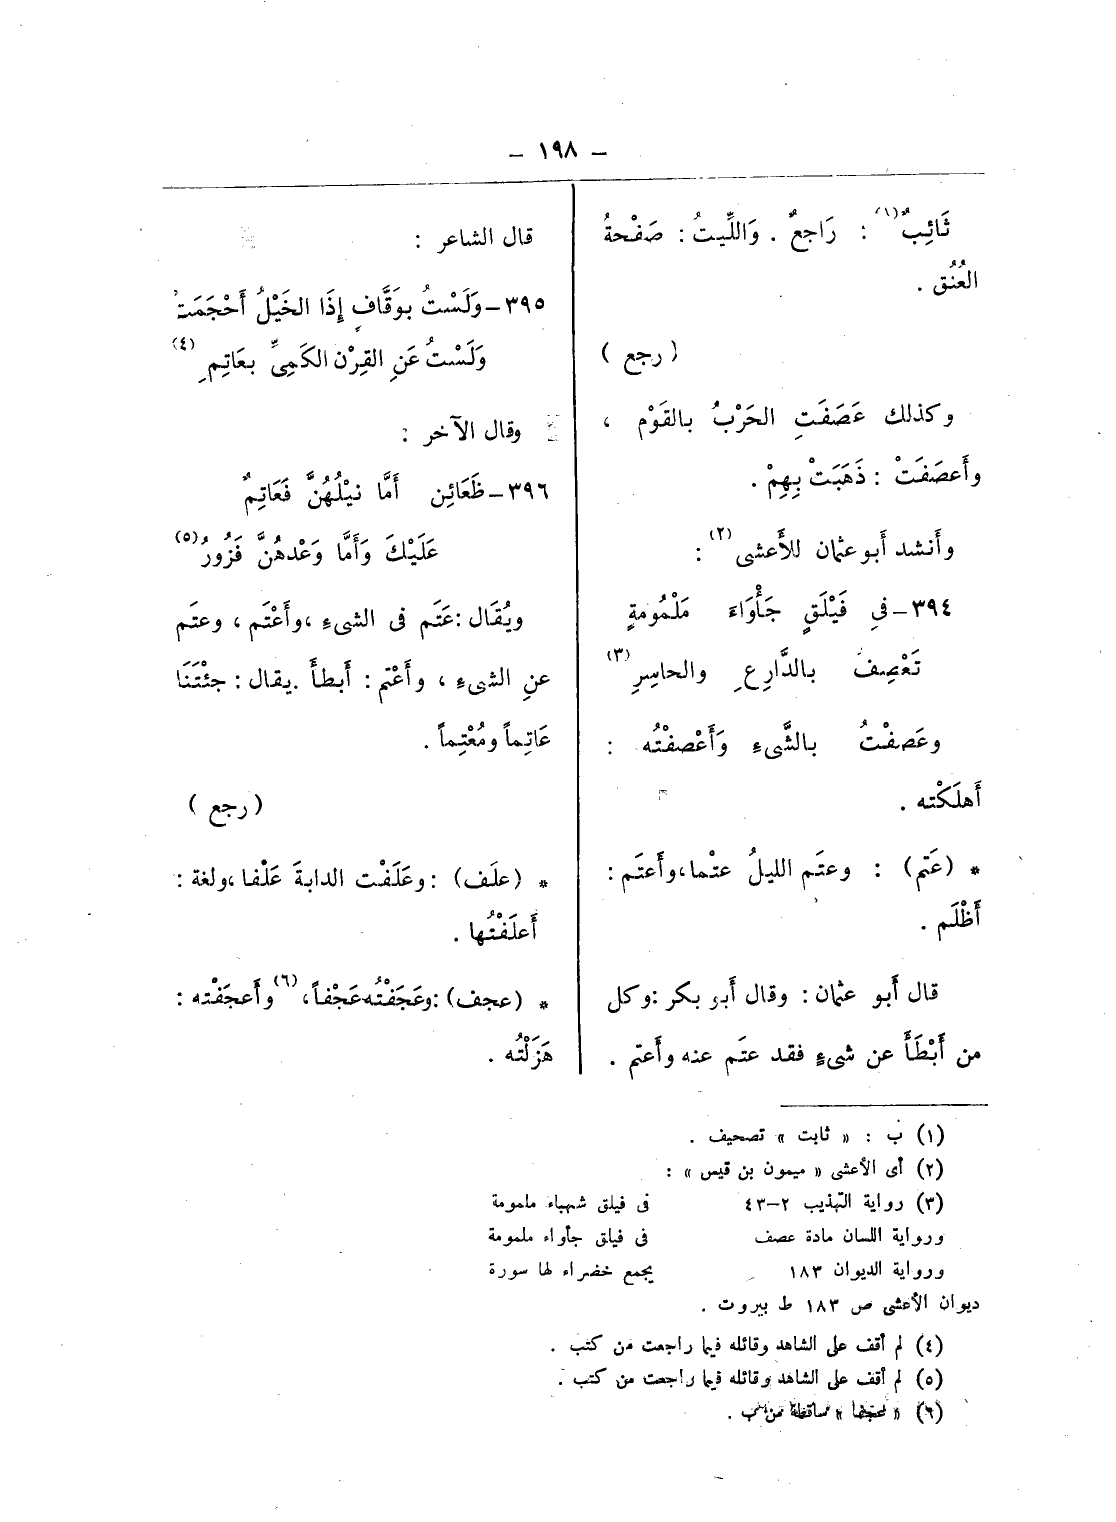 – ١٩٨ –
ثَائِبٌ(١) : رَاجِعٌ . وَاللِّيتُ : صَفْحةُ
العُنُق .
( رجع )
وكذلك عَصَفَتِ الحَرْبُ بالقَوْمِ ،
وأَعصَفَتْ : ذَهَبَتْ بِهِمْ .
وأَنشد أَبو عثمان للأَعشى(٢) :
٣٩٤ – فى فَيْلَقٍ جَأْوَاءَ مَلْمُومةٍ
تَعْصِفُ بالدَّارِعِ والحاسِرِ(٣)
وعَصفْتُ بالشَّىءِ وَأَعْصفْتُه :
أَهلَكْته .
* (عَتم) : وعتَم الليلُ عتْما ، وأَعتَم :
أَظْلَم .
قال أَبو عثمان : وقال أَبو بكر : وكل
من أَبْطَأَ عن شىءٍ فقد عتَم عنه وأَعتم .
قال الشاعر :
٣٩٥ – وَلَسْتُ بوَقَّافٍ إِذَا الخَيْلُ أَحْجَمَتْ
وَلَسْتُ عَنِ القِرْن الكَمِىِّ بعَاتِمِ(٤)
وقال الآخر :
٣٩٦ – ظَعَائِن أَمَّا نيْلُهُنَّ فَعَاتِمٌ
عَلَيْكَ وَأَمَّا وَعْدهُنَّ فَزُورُ(٥)
ويُقَال : عَتَم فى الشىءِ ، وأَعْتَم ، وعتَم
عنِ الشىءِ ، وأَعْتم : أَبطأَ . يقال : جئْتَنَا
عَاتِماً ومُعْتِماً .
( رجع )
* (علَف) : وعَلَفْت الدابةَ عَلْفا ، ولغة :
أَعلَفْتُها .
* (عجف) : وعَجَفْتُه عَجْفاً ،(٦) وأَعجَفْته :
هَزَلْتُه .
(١) ب : « ثابت » تصحيف .
(٢) أى الأعشى « ميمون بن قيس » :
(٣) رواية التهذيب ٢–٤٣ فى فيلق شهباء ملمومة
ورواية اللسان مادة عصف فى فيلق جأواء ملمومة
ورواية الديوان ١٨٣ يجمع خضراء لها سورة
ديوان الأعشى ص ١٨٣ ط بيروت .
(٤) لم أقف على الشاهد وقائله فيما راجعت من كتب .
(٥) لم أقف على الشاهد وقائله فيما راجعت من كتب .
(٦) « عجفا » ساقطة من ب .